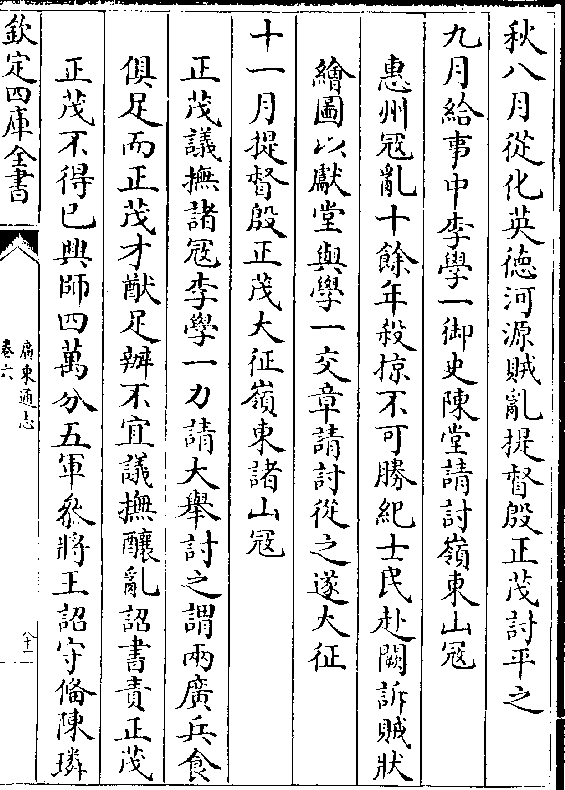 秋八月從化英德河源賊亂提督殷正茂討平之
九月給事中李學一御史陳堂請討嶺東山冦
惠州冦亂十餘年殺掠不可勝紀士民赴闕訴賊狀
繪圖以獻堂與學一交章請討從之遂大征
十一月提督殷正茂大征嶺東諸山冦
正茂議撫諸冦李學一力請大舉討之謂兩廣兵食
俱足而正茂才猷足辦不宜議撫釀亂詔書責正茂
正茂不得已興師四萬分五軍叅將王詔守備陳璘
欽定四庫全書
廣東通志
卷六
六十一